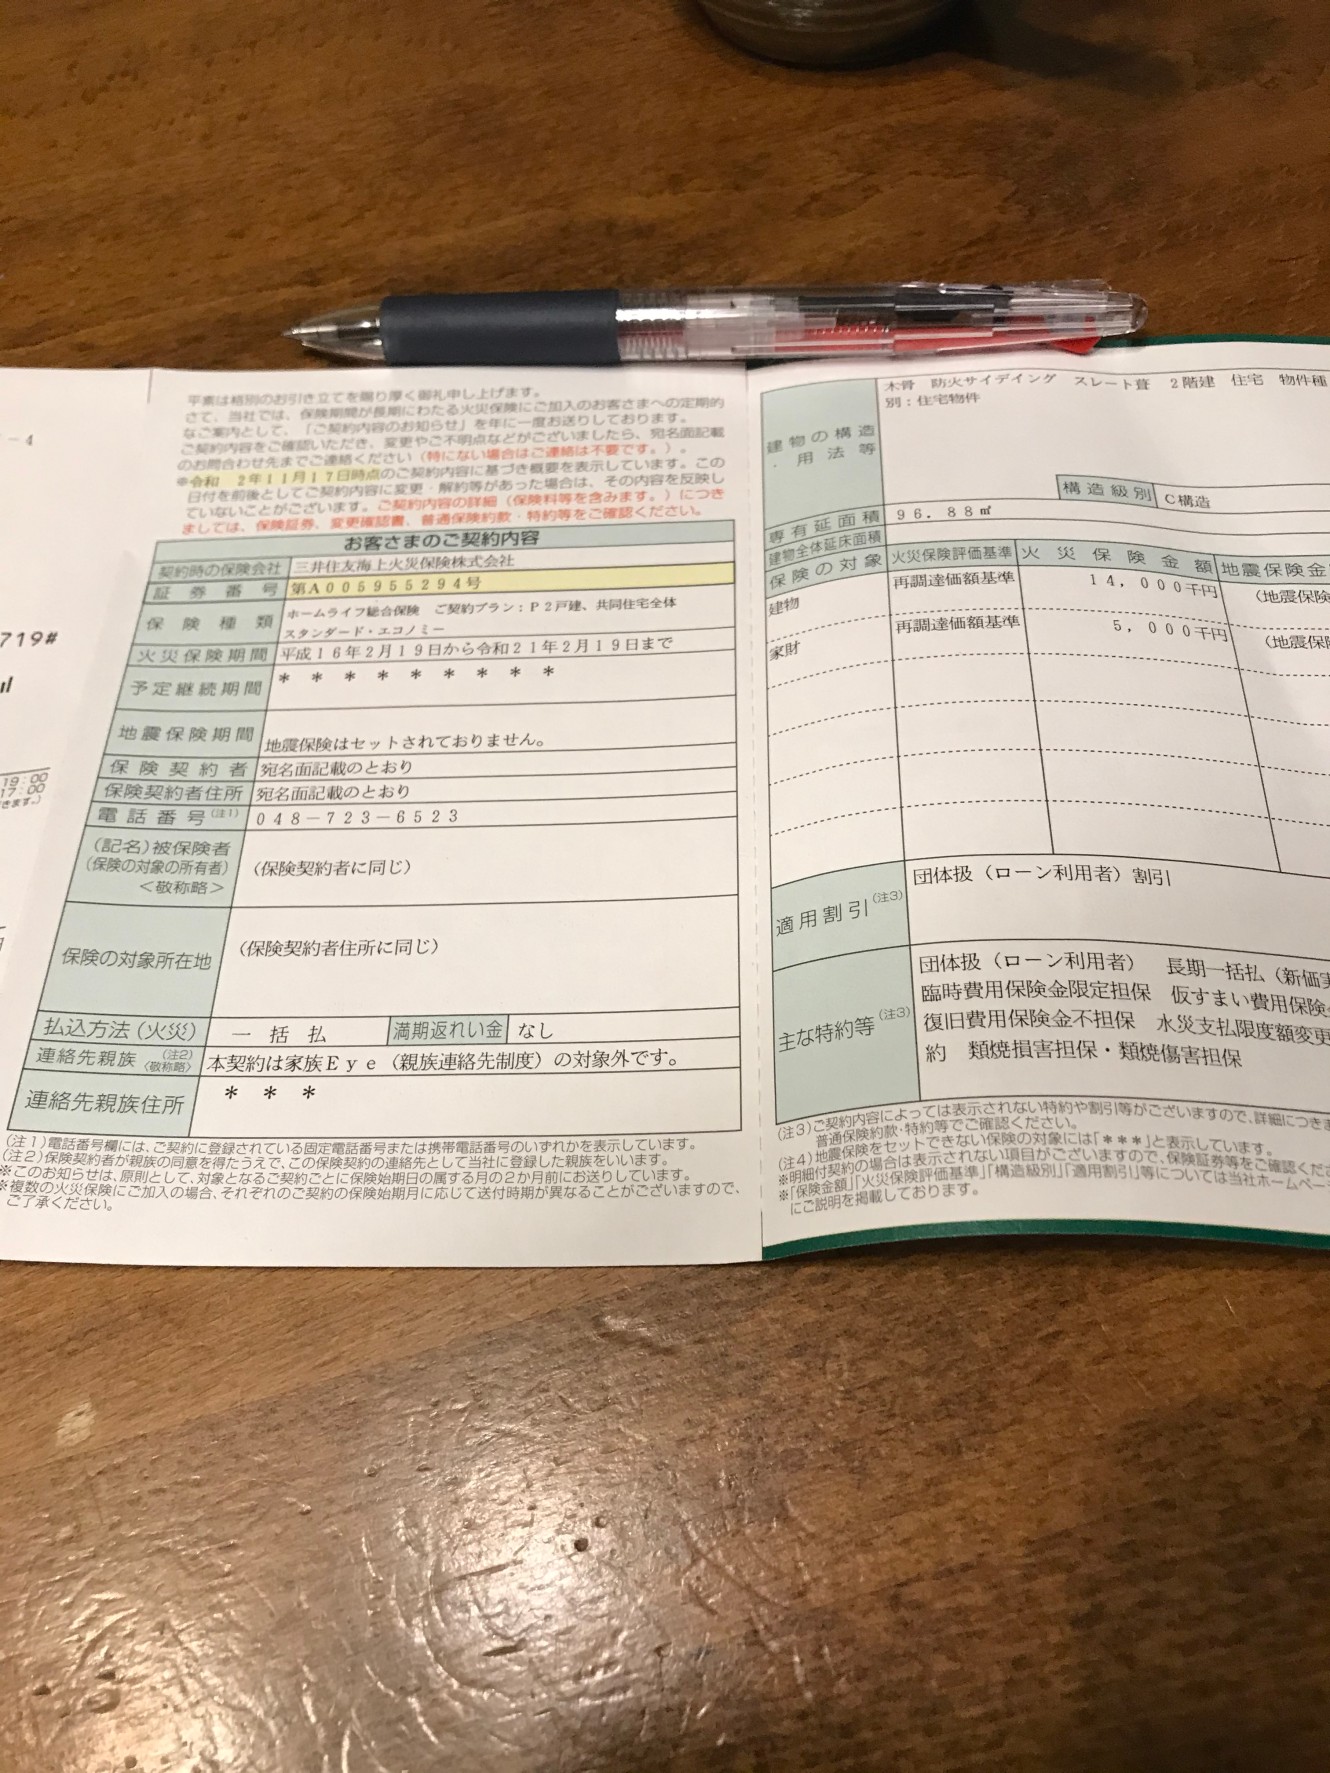 －4
719#
19:00
17:00
きます。)
平素は格別のお引き立てを賜り厚く御礼申し上げます。
さて、当社では、保険期間が長期にわたる火災保険にご加入のお客さまへの定期的
なご案内として、「ご契約内容のお知らせ」を年に一度お送りしております。
ご契約内容をご確認いただき、変更やご不明点などがございましたら、宛名面記載
のお問合わせ先までご連絡ください（特にない場合はご連絡は不要です。）。
※令和　2年11月17日時点のご契約内容に基づき概要を表示しています。この
日付を前後としてご契約内容に変更・解約等があった場合は、その内容を反映し
ていないことがございます。ご契約内容の詳細（保険料等を含みます。）につき
ましては、保険証券、変更確認書、普通保険約款・特約等をご確認ください。
お客さまのご契約内容
契約時の保険会社 三井住友海上火災保険株式会社
証券番号 第A005955294号
保険種類 ホームライフ総合保険　ご契約プラン：P2戸建、共同住宅全体
スタンダード・エコノミー
火災保険期間 平成16年2月19日から令和21年2月19日まで
予定継続期間 ＊＊＊＊＊＊＊＊＊
地震保険期間 地震保険はセットされておりません。
保険契約者 宛名面記載のとおり
保険契約者住所 宛名面記載のとおり
電話番号(注1) 048－723－6523
(記名)被保険者
(保険の対象の所有者) （保険契約者に同じ）
＜敬称略＞
保険の対象所在地 （保険契約者住所に同じ）
払込方法(火災) 一括払 満期返れい金 なし
連絡先親族 (注2)〈敬称略〉 本契約は家族Eye（親族連絡先制度）の対象外です。
連絡先親族住所 ＊＊＊
(注1)電話番号欄には、ご契約に登録されている固定電話番号または携帯電話番号のいずれかを表示しています。
(注2)保険契約者が親族の同意を得たうえで、この保険契約の連絡先として当社に登録した親族をいいます。
※このお知らせは、原則として、対象となるご契約ごとに保険始期日の属する月の2か月前にお送りしています。
※複数の火災保険にご加入の場合、それぞれのご契約の保険始期月に応じて送付時期が異なることがございますので、
ご了承ください。
建物の構造・用法等 木骨　防火サイデイング　スレート葺　2階建　住宅　物件種
別：住宅物件
構造級別 C構造
専有延面積
建物全体延床面積 96.88㎡
保険の対象 火災保険評価基準 火災保険金額 地震保険金
建物 再調達価額基準 14,000千円 （地震保険
家財 再調達価額基準 5,000千円 （地震保
適用割引(注3) 団体扱（ローン利用者）割引
主な特約等(注3) 団体扱（ローン利用者）　長期一括払（新価実
臨時費用保険金限定担保　仮すまい費用保険
復旧費用保険金不担保　水災支払限度額変更
約　類焼損害担保・類焼傷害担保
(注3)ご契約内容によっては表示されない特約や割引等がございますので、詳細につきま
普通保険約款・特約等でご確認ください。
(注4)地震保険をセットできない保険の対象には「＊＊＊」と表示しています。
※明細付契約の場合は表示されない項目がございますので、保険証券等をご確認くださ
※「保険金額」「火災保険評価基準」「構造級別」「適用割引」等については当社ホームページ
にご説明を掲載しております。